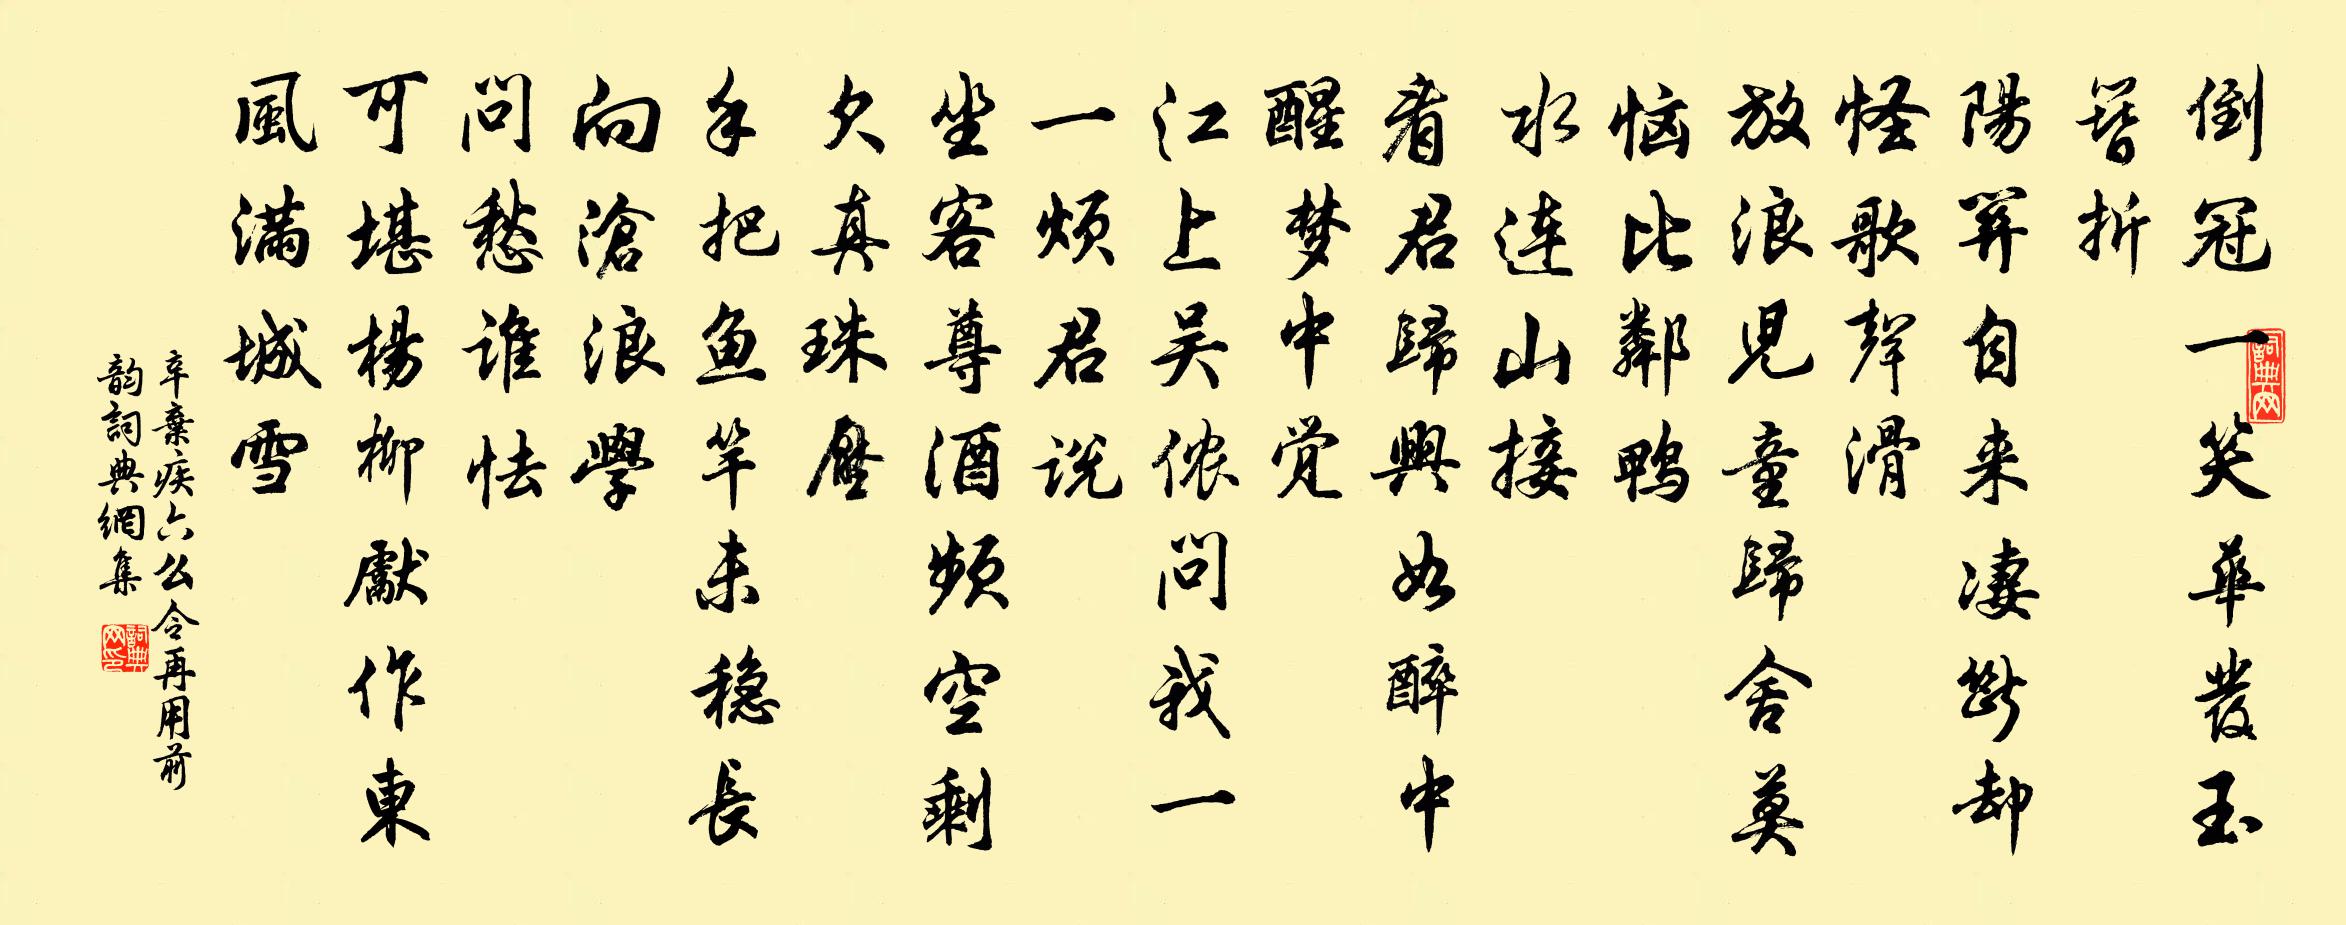 倒冠一笑華發玉
簪折
陽關自来淒斷却
怪歌聲滑
放浪兒童歸舍莫
恼比鄰鴨
水連山接
看君歸興如醉中
醒梦中觉
江上吴侬問我一
一烦君説
坐客尊酒频空剩
欠真珠壓
手把魚竿未穩長
向滄浪學
問愁誰怯
可堪楊柳獻作東
風滿城雪
辛棄疾六么令再用前
韵詞典網集
詞典网
詞典网印